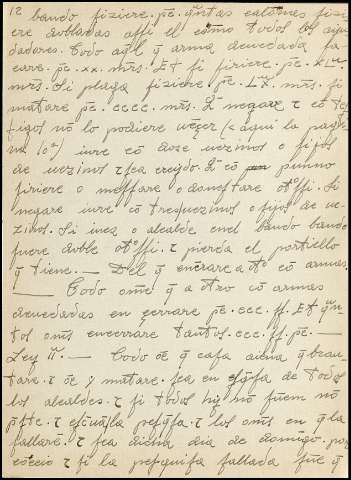 12 bando fiziere. pē. qñtas calonnas fizi
ere dobladas assi el como todos los ayu
dadores. Todo aql̄ q̄ arma deuedada sa
care. pē. xx. mr̄s. Et si firiere. pē. xLª.
mr̄s. Si plaga fiziere. pē. Lxª. mr̄s. si
matare pē. cccc. mr̄s. Z negare τ cō tes
tigos nō lo podiere uēçer (< aqui la pagi
na 10ª) iure cō doze uezinos o fijos
de uezinos τ sea creydo. Z cō punno
firiere o messare o
negare iure cō tres uezinos o fijos de ue
zinos. Si iuez o alcalde enel bando bando
fuere doble τ pierda el portiello
q̄ tiene. — Del q̄ encerrare a otº cō armas.
— Todo omē q̄ a otro cō armas
deuedadas en çerrare pē. ccc. ss. Et qñ
tos om̄s encerrare tantos. ccc. ss. pē. —
Ley ii. — Todo ōe q̄ casa agena q̄bran
tare. τ ōe y matare. sea en de todos
los alcaldes. τ si todos hy nō fuem nō
τ los om̄s en q̄ la
fallarē. τ sea dicha dia de domīgo. por
cōceio τ si la pesquisa fallada fue q̄